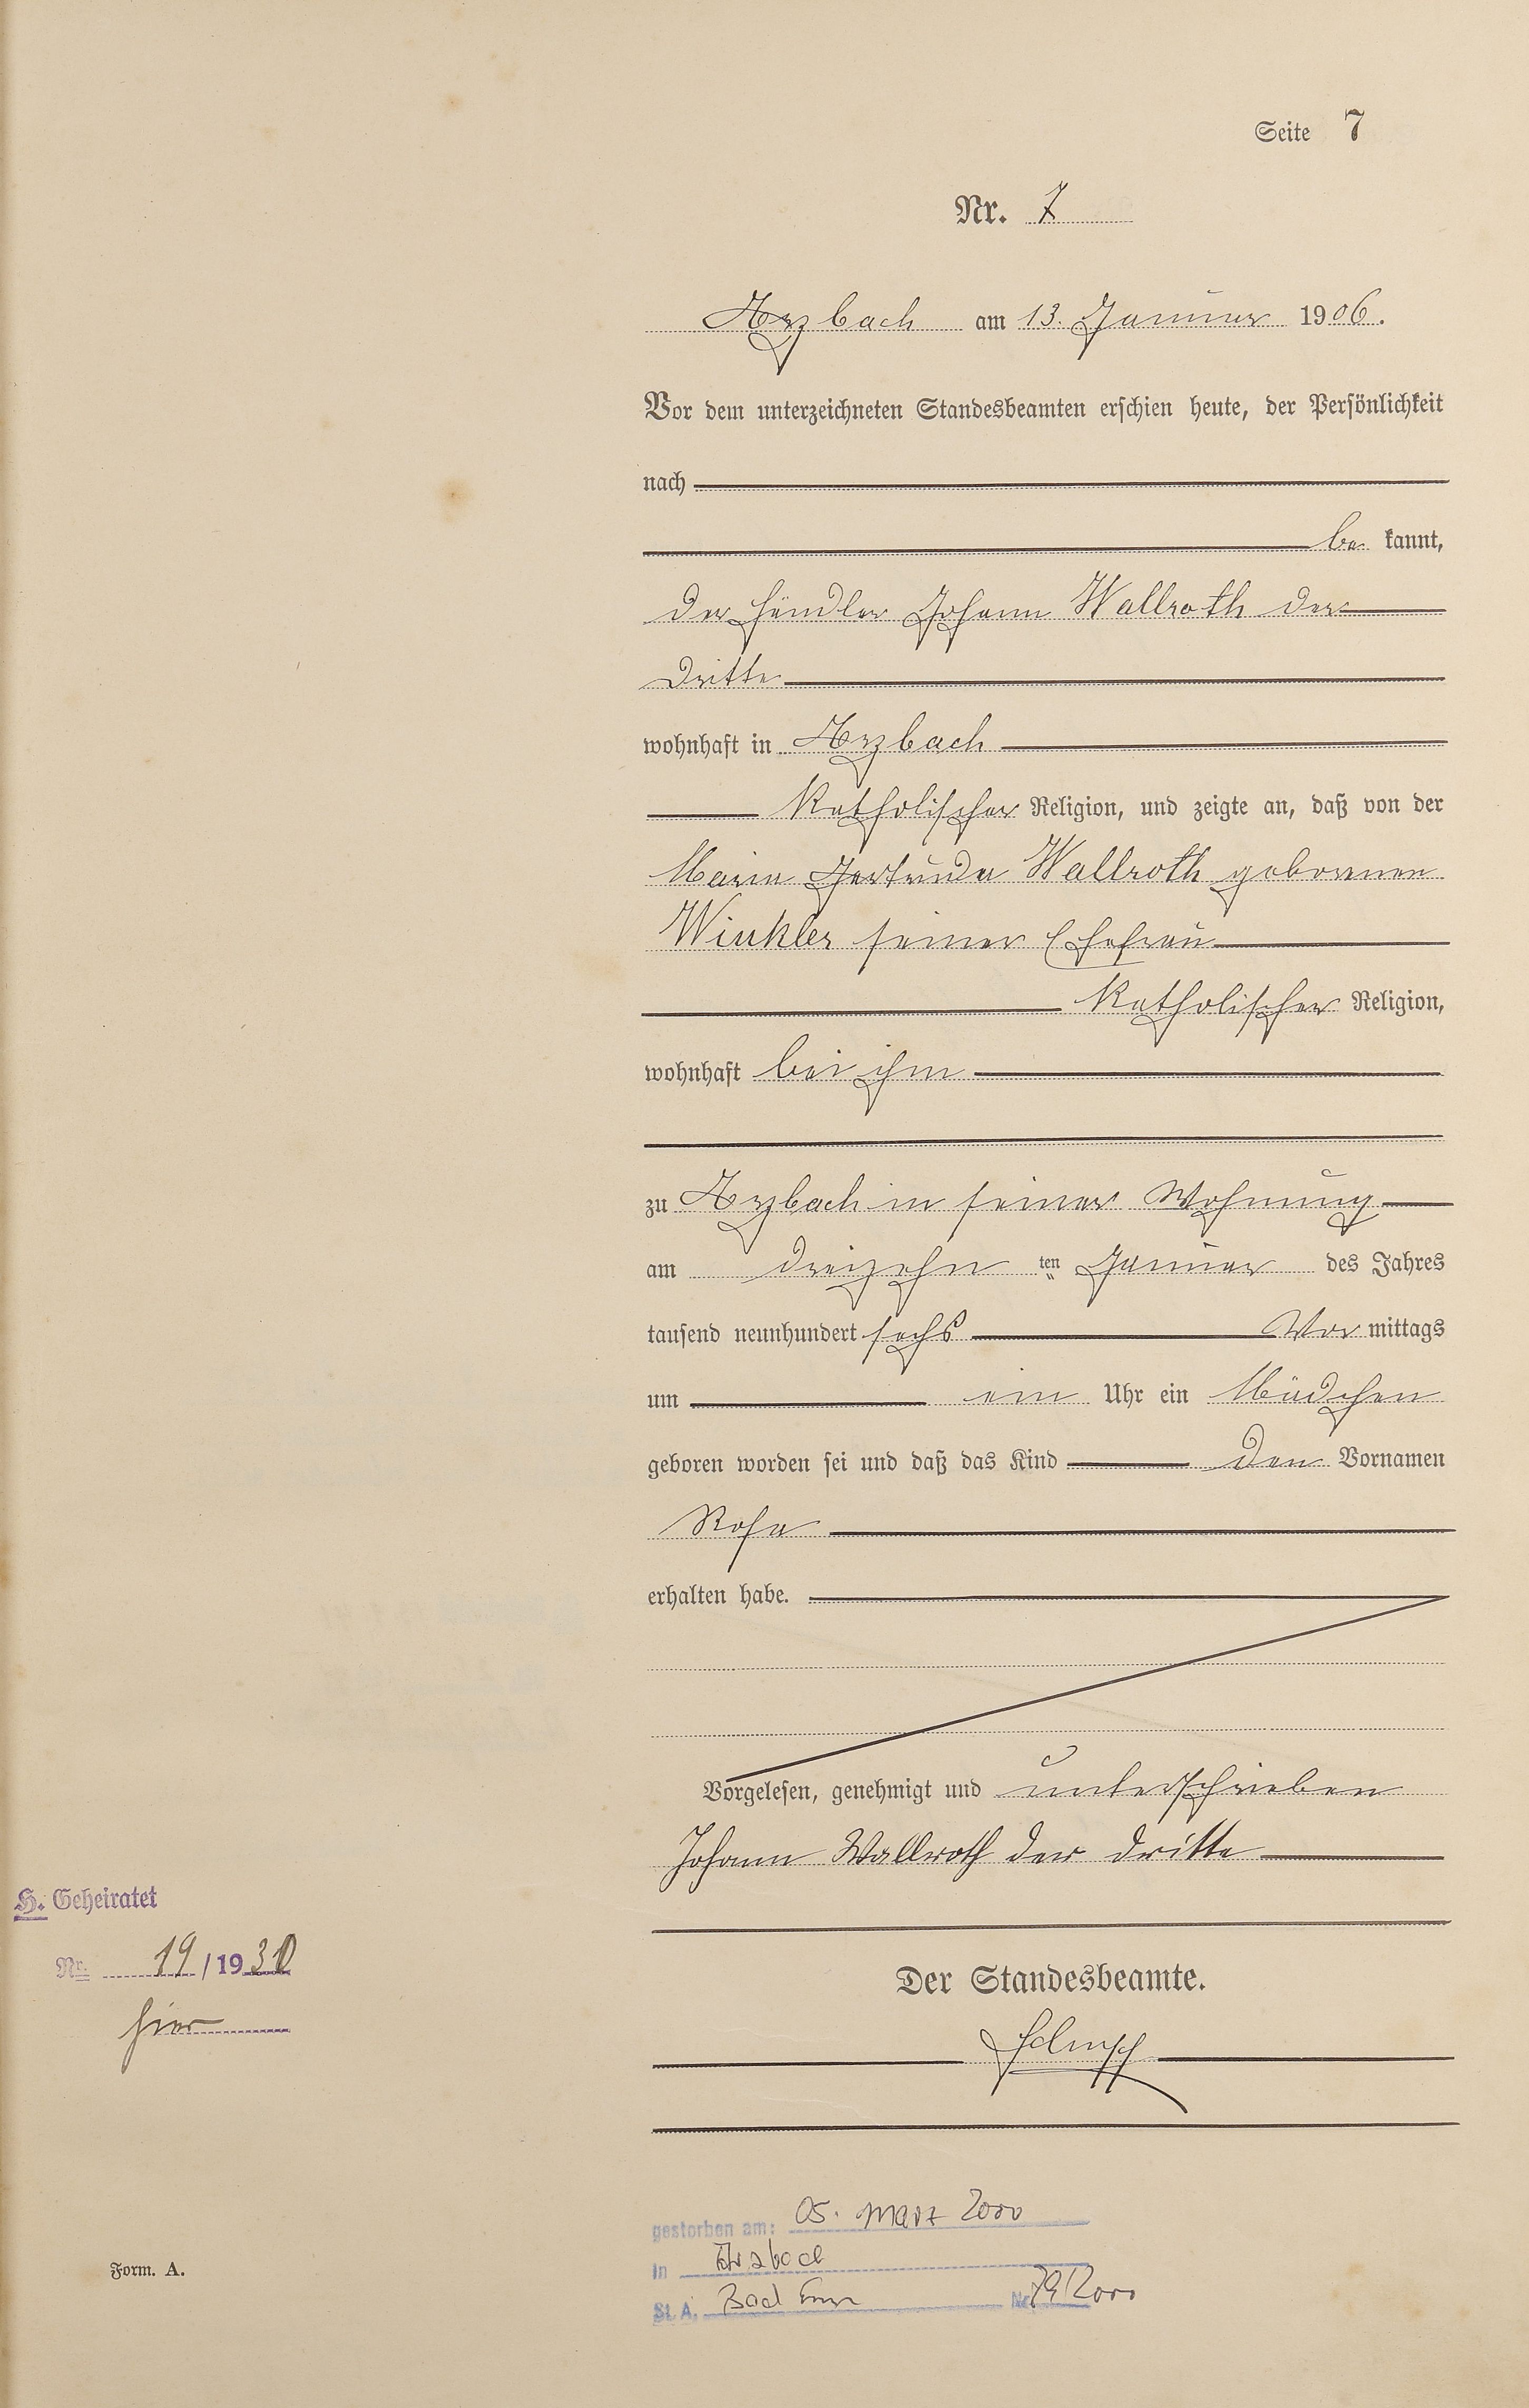 Seite 7
Nr. 7
Arzbach am 13. Januar 1906.
Vor dem unterzeichneten Standesbeamten erschien heute, der Persönlichkeit
nach
be kannt,
der Händler Johann Wallroth der
Dritte
wohnhaft in Arzbach
katholischer Religion, und zeigte an, daß von der
Maria Gertruda Wallroth geborenen
Winkler seiner Ehefrau
katholischer Religion,
wohnhaft bei ihm
zu Arzbach in seiner Wohnung
am dreizehn ten Januar des Jahres
tausend neunhundert sechs Vor mittags
um ein Uhr ein Mädchen
geboren worden sei und daß das Kind den Vornamen
Rosa
erhalten habe.
Vorgelesen, genehmigt und unterschrieben
Johann Wallroth der dritte
H. Geheiratet
Nr. 19/1930
hier
Der Standesbeamte.
gestorben am: 05. März 2000
in Arzbach
St. A. Bad Ems Nr. 79/2000
Form. A.